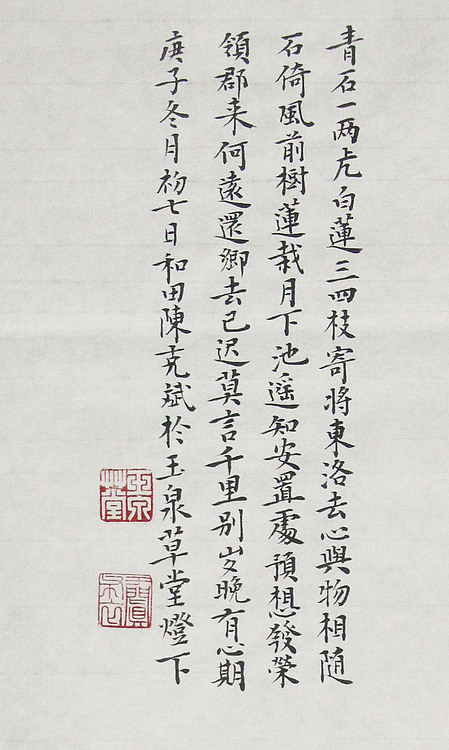 青石一两片白蓮三四枝寄將東洛去心與物相隨
石倚風前樹蓮栽月下池遥知安置處預想發榮
領郡来何遠還鄉去已迟莫言千里別岁晚有心期
庚子冬月初七日和田陳克斌於玉泉草堂燈下
玉泉草堂